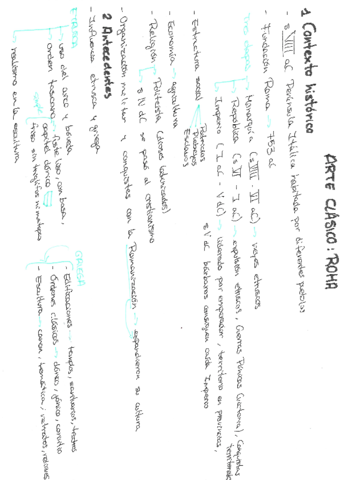 ARTE CLÁSICO: ROMA
1 Contexto histórico
- s VIII aC Península Itálica habitada por diferentes pueblos
- Fundación Roma → 753 aC
Tres etapas
Monarquía (s VIII VI aC) → reyes etruscos
República (s VI - I aC) → expulsión etruscos, Guerras Púnicas (victoria), Conquistas territoriales
Imperio (I aC - V dC) → liderado por emperador, territorio en provincias,
s V dC bárbaros consiguen caída Imperio
- Estructura social
Patricios
Plebeyos
Esclavos
- Economía → agricultura
- Religión
Politeísta (dioses
s IV dC se pasó al cristianismo
- Organización militar y conquistas con la Romanización → expandieron su cultura
2 Antecedentes
- Influencia etrusca y griega
ETRUSCA
uso del arco y bóveda
Orden toscano
fuste liso, con basa,
capitel dórico
friso sin triglifos ni metopas
realismo en la escultura
GRIEGA
- Edificaciones → templos, santuarios, teatros
- Órdenes clásicos → dórico, jónico, corintio
- Escultura → canon, temática, retratos, relieves